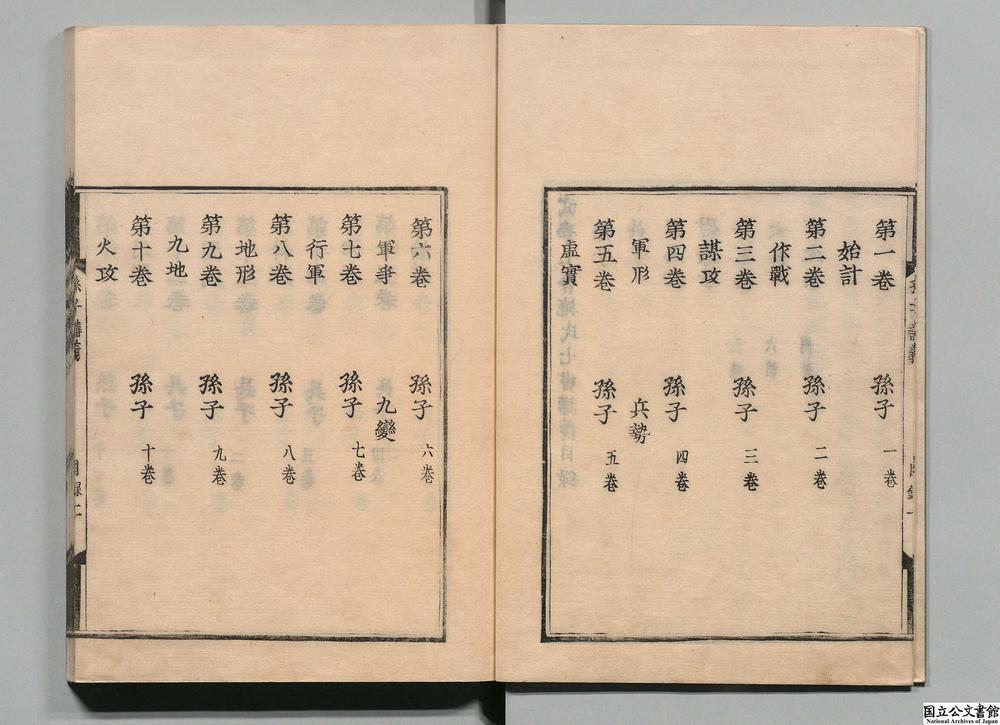 第一卷　孫子　一卷
始計
第二卷　孫子　二卷
作戰
第三卷　孫子　三卷
謀攻
第四卷　孫子　四卷
軍形　兵勢
第五卷　孫子　五卷
虛實
第六卷　孫子　六卷
軍爭　九變
第七卷　孫子　七卷
行軍
第八卷　孫子　八卷
地形
第九卷　孫子　九卷
九地
第十卷　孫子　十卷
火攻
孫子講義　目錄二
国立公文書館
National Archives of Japan